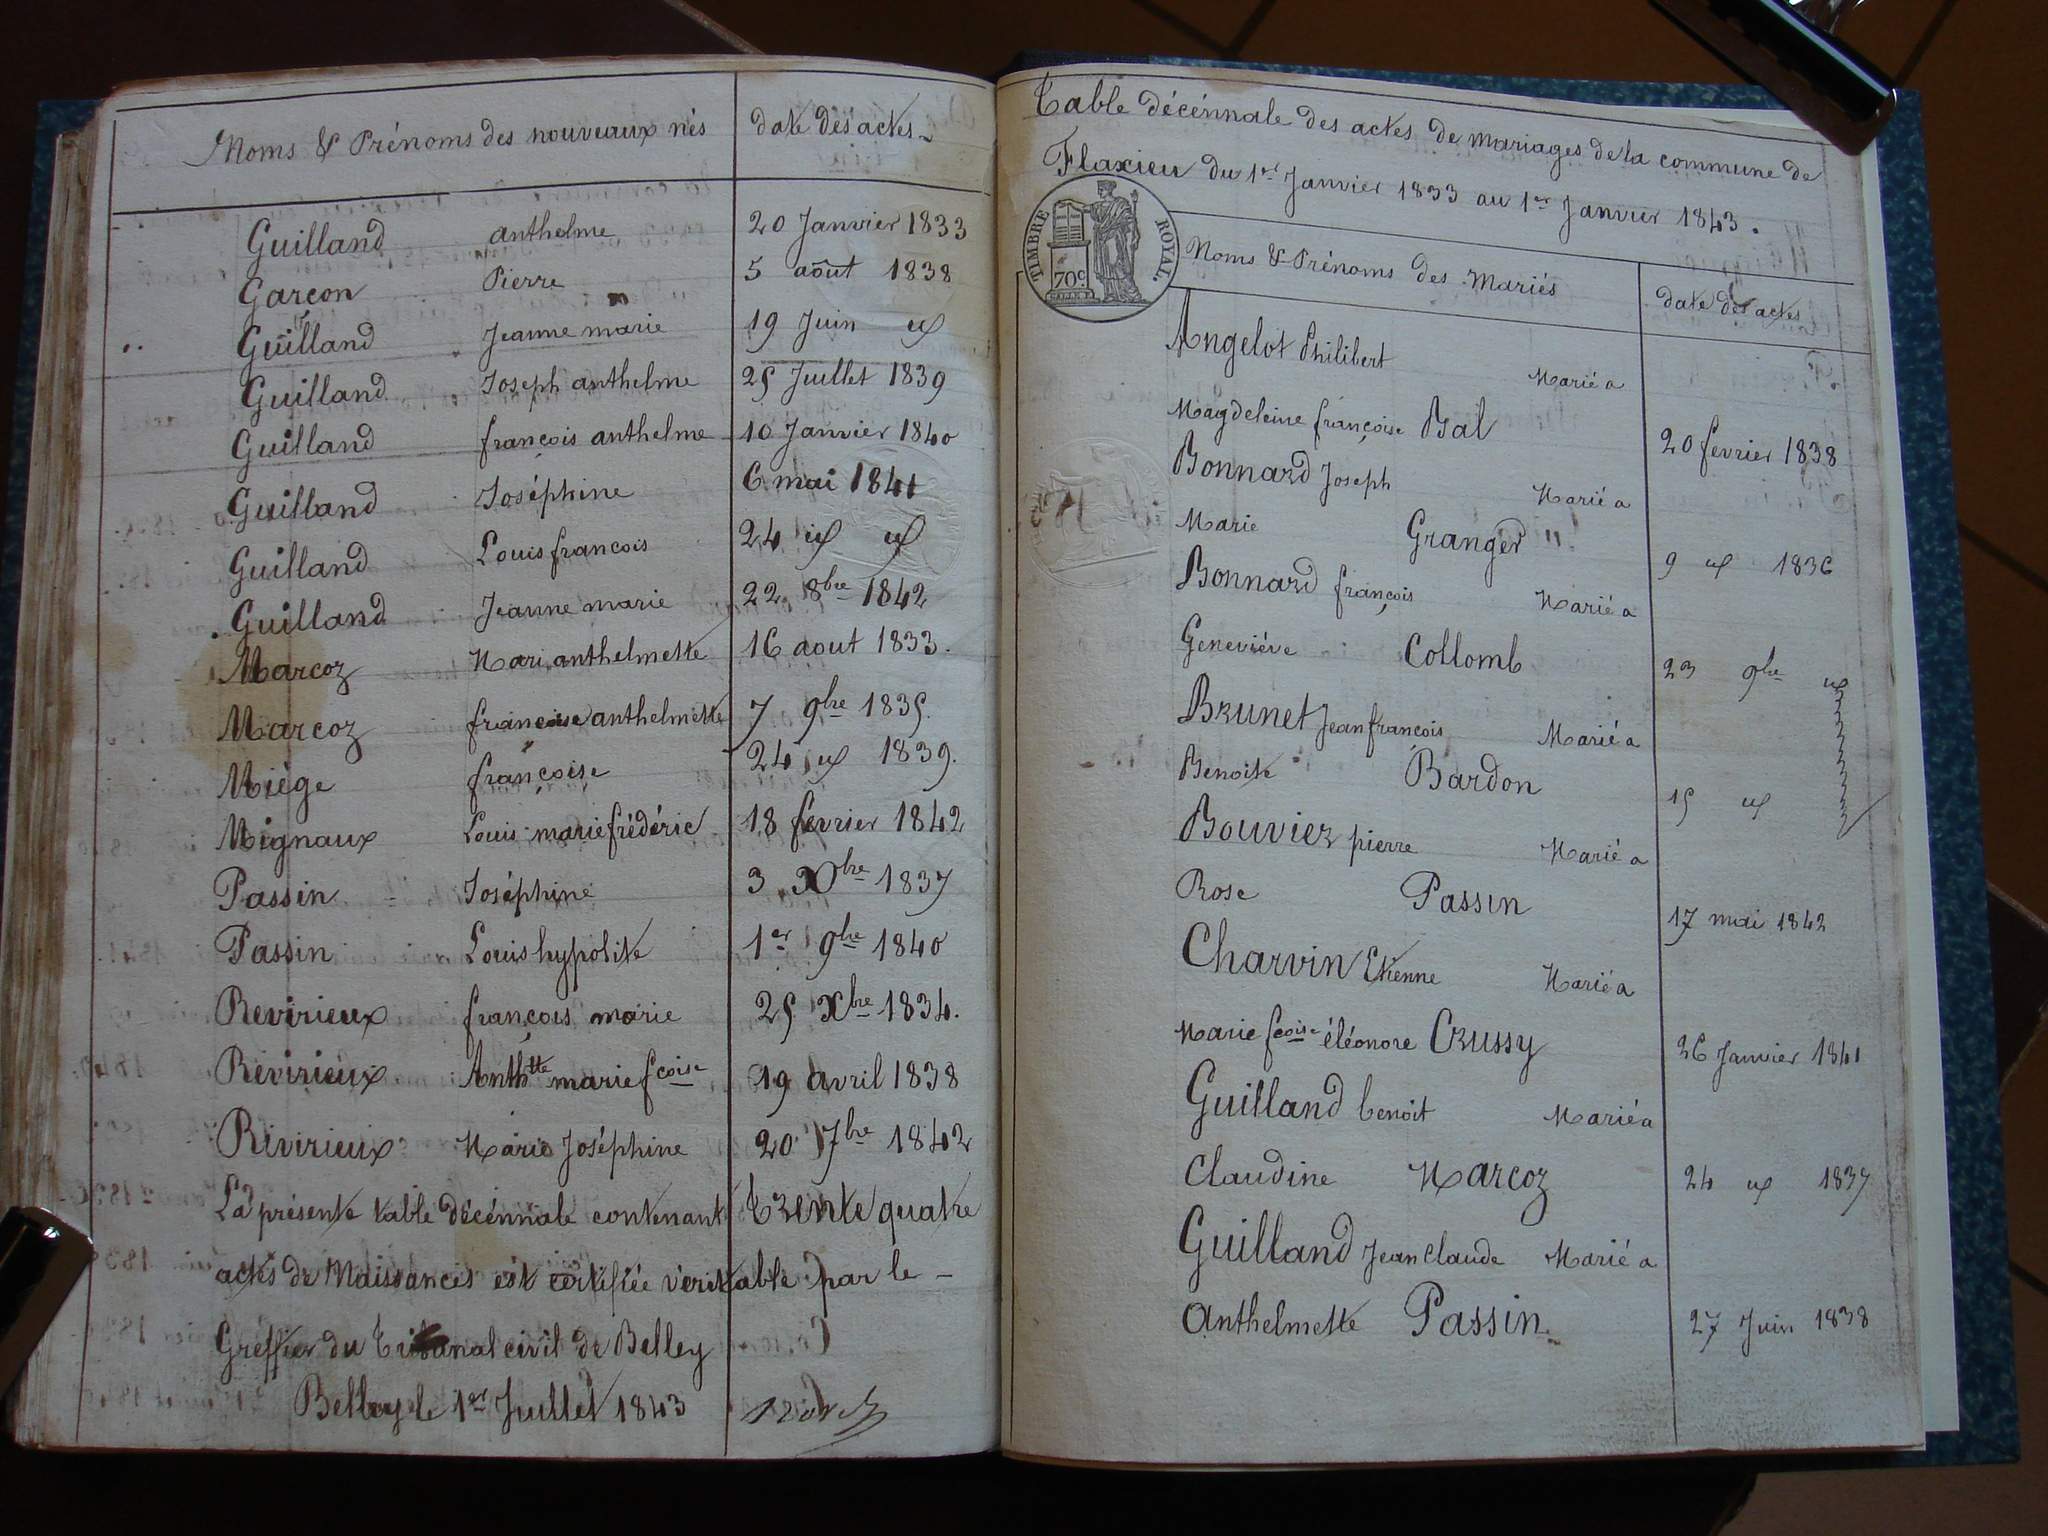 Noms & Prénoms des nouveaux nés date des actes
Guilland anthelme 20 Janvier 1833
Garçon Pierre 5 août 1838
Guilland Jeanne marie 19 Juin id
Guilland Joseph anthelme 25 Juillet 1839
Guilland françois anthelme 10 Janvier 1840
Guilland Joséphine 6 mai 1841
Guilland Louis francois 24 id id
Guilland Jeanne marie 22 8bre 1842
Marcoz Mari anthelmette 16 aout 1833.
Marcoz francoise anthelmette 7 9bre 1835.
Miége françoise 24 id 1839.
Mignaux Louis marie frédéric 18 fevrier 1842
Passin Joséphine 3 Xbre 1837
Passin Louis hypolite 1er 9bre 1840
Revirieux françois marie 25 Xbre 1834.
Revirieux Anthtte marie fcoise 19 avril 1838
Rivirieux Marie Joséphine 20 7bre 1842
La présente table décénnale contenant Trente quatre
actes de Naissances est certifiée véritable par le -
Greffier du Tribunal civil de Belley
Belley le 1er Juillet 1843
Table décénnale des actes de mariages de la commune de
Flaxieu du 1er Janvier 1833 au 1er Janvier 1843.
TIMBRE ROYAL.
70c
Noms & Prénoms des Mariés date des actes
Angelot Philibert Marié a
Magdeleine françoise Bal 20 fevrier 1838
Bonnard Joseph Marié a
Marie Granger " 9 id 1836
Bonnard françois Marié a
Geneviéve Collomb 23 9bre id
Brunet Jean françois Marié a
Benoite Bardon 15 id
Bouvier pierre Marié a
Rose Passin 17 mai 1842
Charvin Etienne Marié a
Marie fcoise éléonore Crussy 26 Janvier 1841
Guilland benoit Marié a
Claudine Marcoz 24 id 1837
Guilland Jean Claude Marié a
Anthelmette Passin. 27 Juin 1838